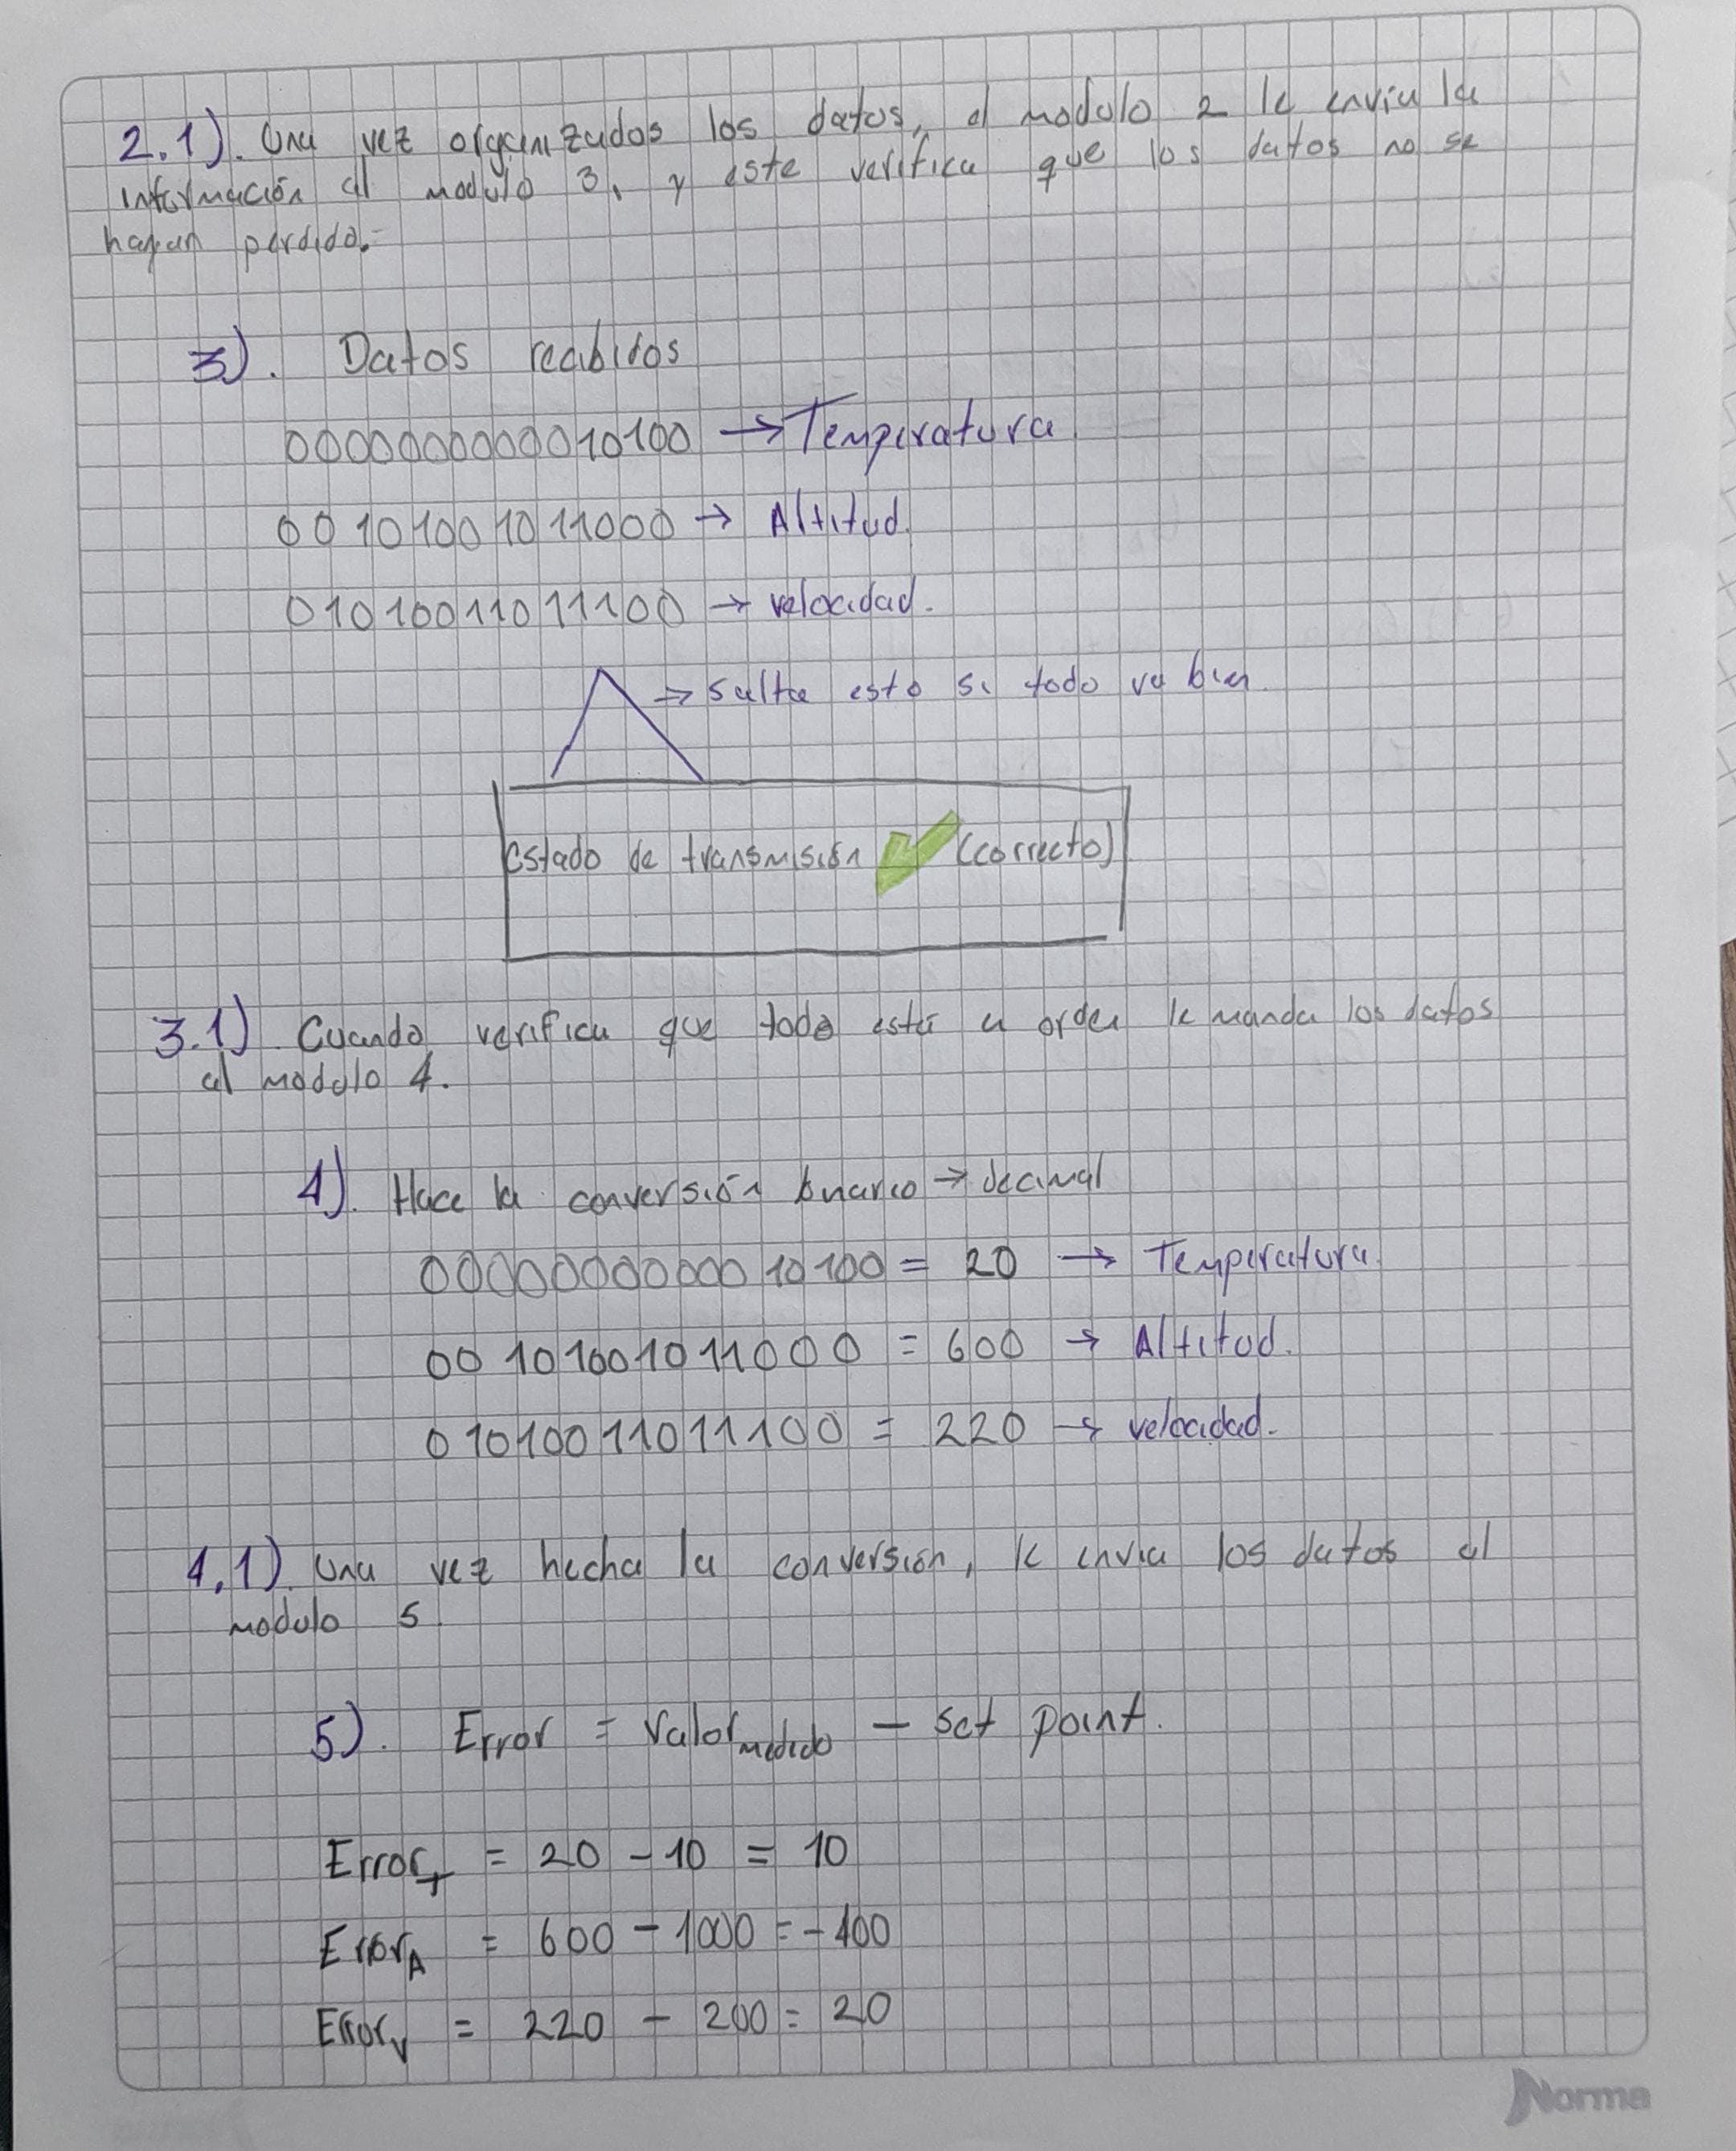 2.1). Una vez organizados los datos, el modulo 2 le envia la
información al modulo 3, y este verifica que los datos no se
hayan perdido.
3). Datos recibidos
0000000000010100 → Temperatura
0010100101 1000 → Altitud.
01010011011100 → velocidad.
→ Salta esto si todo va bien.
Estado de transmisión (correcto)
3.1) Cuando verifica que todo está a orden le manda los datos
al modulo 4.
4). Hace la conversión binario → decimal
0000000000010100 = 20 → Temperatura.
00101001011000 = 600 → Altitud.
01010011011100 = 220 → velocidad.
4.1). Una vez hecha la conversión, le envia los datos al
modulo 5.
5). Error = Valor medido - set point.
Error T = 20 - 10 = 10
Error A = 600 - 1000 = -400
Error V = 220 - 200 = 20
Norma